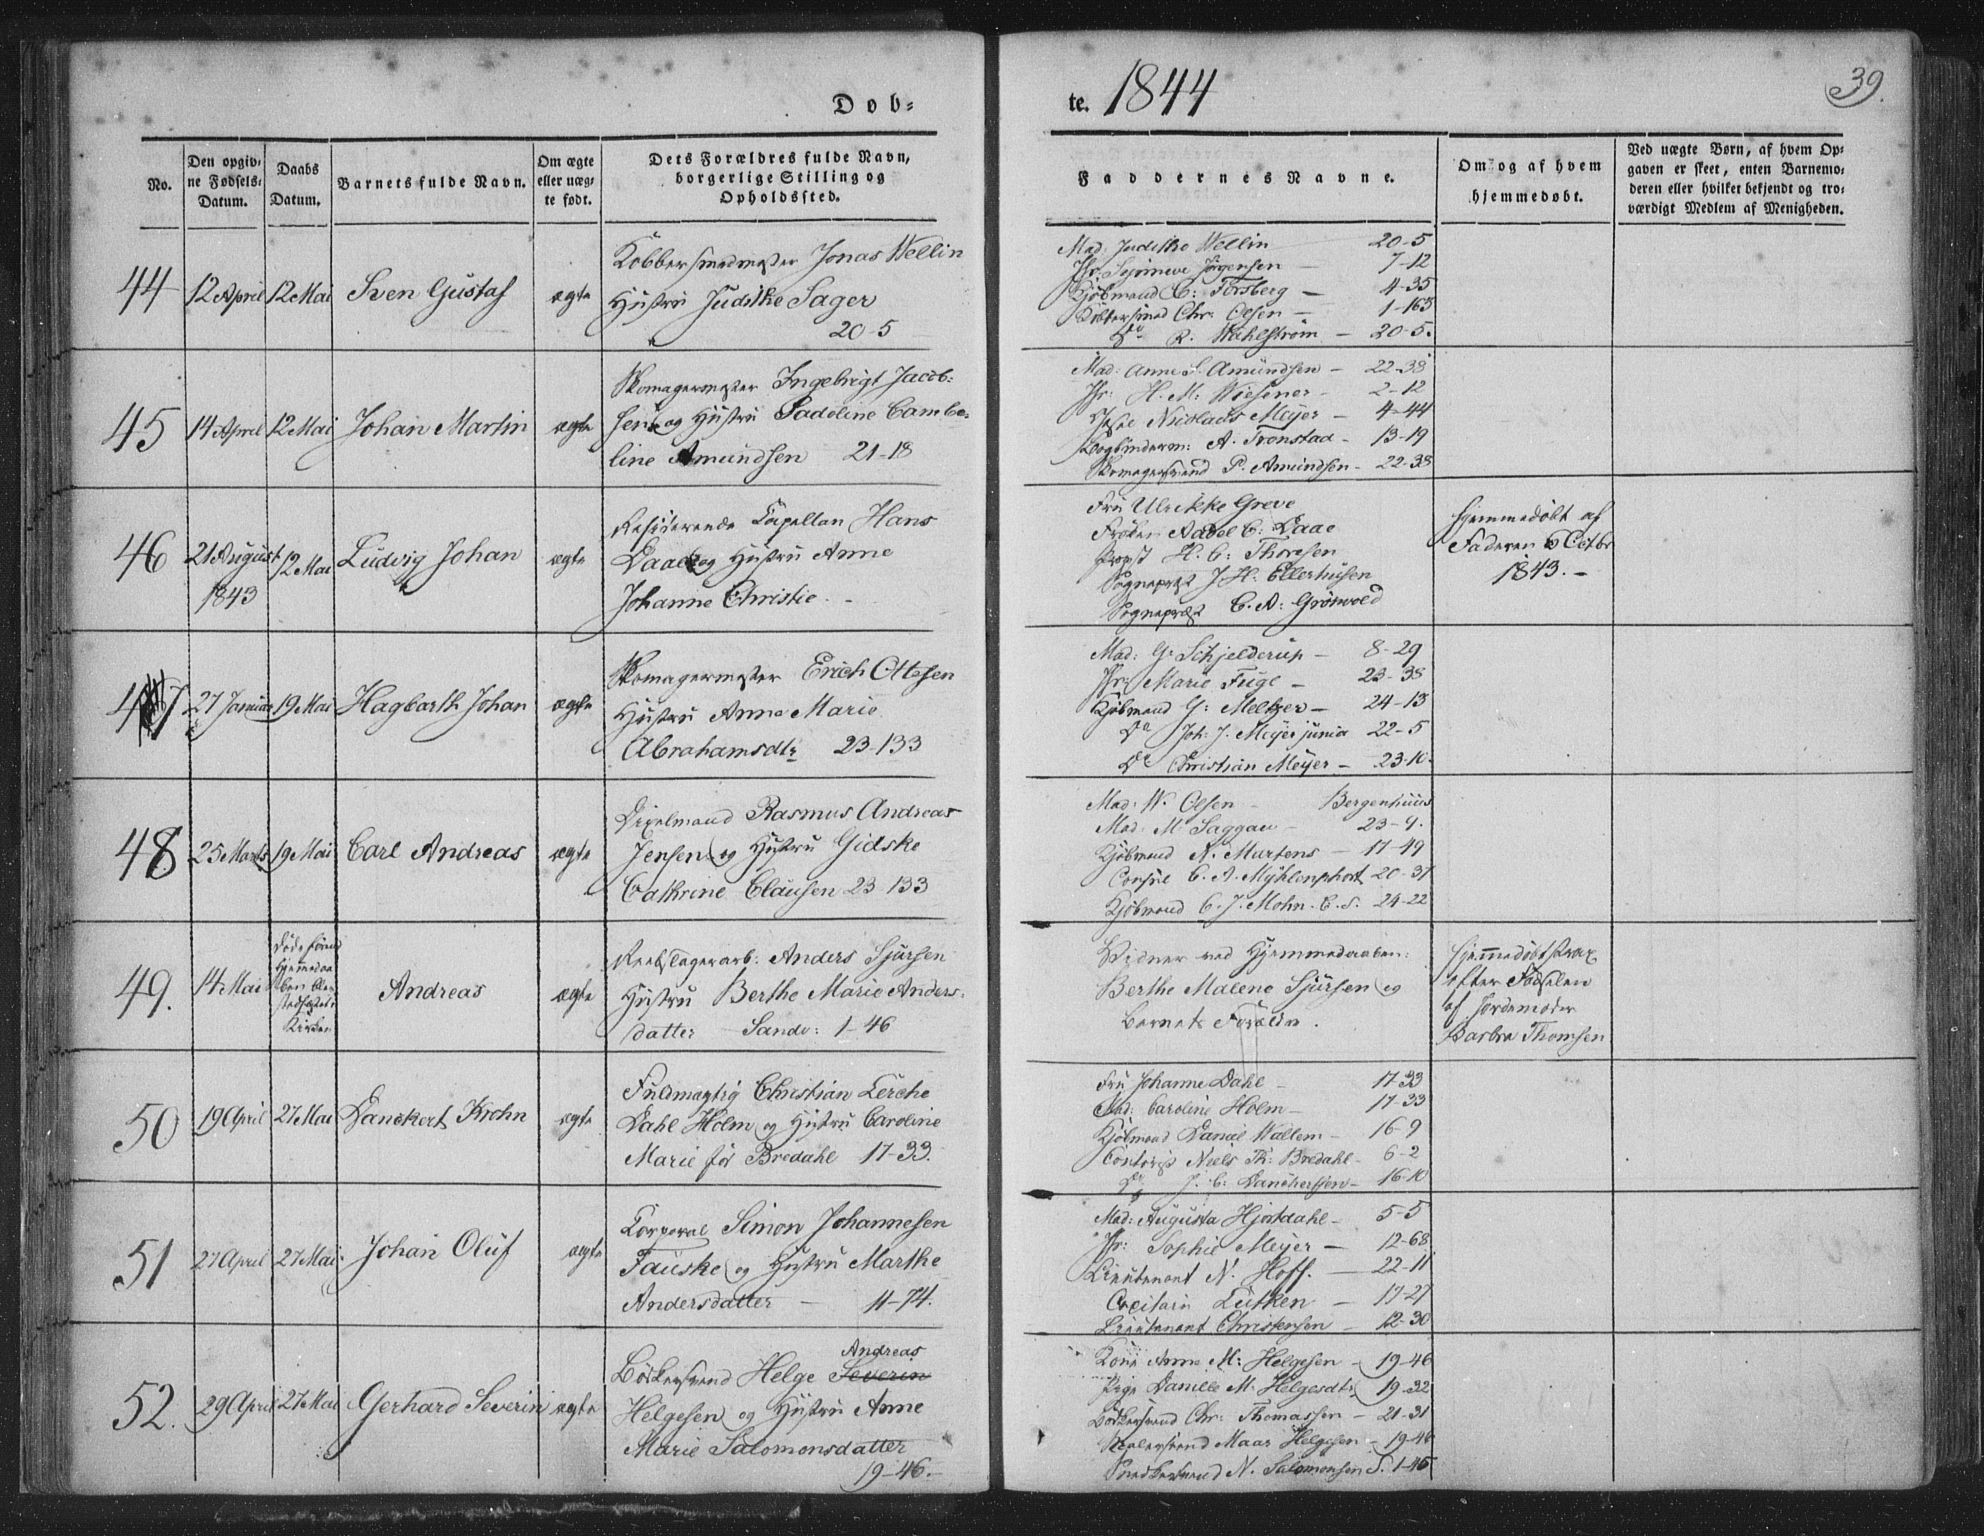 Døb=
te. 1844
39.
No.
Den opgiv-
ne Fødsels-
Datum.
Daabs
Datum.
Barnets fulde Navn.
Om ægte
eller uæg-
te født.
Dets Forældres fulde Navn,
borgerlige Stilling og
Opholdssted.
Faddernes Navne.
Om og af hvem
hjemmedøbt.
Ved uægte Børn, af hvem Op-
gaven er skeet, enten Barnemo-
deren eller hvilket bekjendt og tro-
værdigt Medlem af Menigheden.
44
12 April
12 Mai
Sven Gustaf
ægte
Kobbersmedmester Jonas Wellin
Hustru Judithe Sager
20-5
Mad. Judithe Wellin 20-5
Jfr. Jørgensen - 7-12
Kjøbmand C: Forsberg - 4-35
Chr. Olsen - 1-163
Do R. Wahlstrøm - 20-5.
45
14 April
12 Mai
Johan Martin
ægte
Skomagermester Ingebrigt Jacob-
sen og Hustru Sadoline Cambo-
line Amundsen 21-18
Mad: Anne S. Amundsen - 22-38
Jfr: H. M. Wiesener - 2-12
Nicolads Meyer - 4-44
Bogbinderm: A. Tronstad - 13-19
Skomagersvend P. Amundsen - 22-38
46
21 August
1843
12 Mai
Ludvig Johan
ægte
Residerende Capellan Hans
Daae og Hustru Anne
Johanne Christie. -
Fru Ulrikke Greve
Frøken Aadel C. Daae
Propst H. C: Thoresen
Sognepræst J. H. Ellerhusen
Sognepræst C. A: Grønvold
Hjemmedøbt af
Faderen 6 Octbr
1843. -
47
27 Januar
19 Mai
Hagbarth Johan
ægte
Skomagermester Erich Ottesen
Hustru Anne Marie
Abrahamsdtr 23-133
Mad: G. Schjelderup - 8-29
Jfr: Marie Fuge - 23-38
Kjøbmand G: Meltzer - 24-13
Do Joh: J. Meyer junia 22-5
Do Christian Meyer - 23-10.
48
25 Marts
19 Mai
Carl Andreas
ægte
Rasmus Andreas
Jensen og Hustru Gidske
Cathrine Clausen 23-133
Mad: W. Olsen - Bergenhuus
Mad. M. Saggau - 23-9.
Kjøbmand N. Martens - 17-49
Consul C. A. Mÿhlenphort 20-37
Kjøbmand C. J. Mohn. C. S. 24-22
49.
14 Mai
Døde førend
Hjemmedaa-
ben
Kirken
Andreas
ægte
Reebslagerarb: Anders Sjursen
Hustru Berthe Marie Anders-
datter Sandv: 1-46
Vidner ved Hjemmedaaben:
Berthe Malene Sjursen og
Barnets Forældre.
Hjemmedøbt strax
efter Fødselen
af Jordemoder
Barbra Thomsen
50
19 April
27 Mai
Danckert Krohn
ægte
Fuldmægtig Christian Lerche
Dahl Holm og Hustru Caroline
Marie før Bredahl 17-33.
Fru Johanne Dahl - 17-33
Mad: Caroline Holm - 17-33
Kjøbmand Daniel Wallem - 16-9
Contorist Niels Th: Bredahl - 6-2
Do J. C: Danckertsen - 16-10
51
27 April
27 Mai.
Johan Oluf
ægte
Corporal Simon Johannesen
Fauske og Hustru Marthe
Andersdatter - 11-74.
Mad: Augusta Hjortdahl - 5-5
Jfr: Sophie Meyer - 12-68
Lieutenant N. Hoff. - 22-11
Capitain Lütken - 17-27
Lieutenant Christensen - 12-30
52.
29 April
27 Mai
Gerhard Severin
ægte
Andreas
Bødkersvend Helge Severin
Helgesen og Hustru Anne
Marie Salomonsdatter
19-46.-
Kone Anne M: Helgesen - 19-46
Pige Danille M. Helgesdtr 19-32
Bødkersvend Chr: Thomassen - 21-31
Maar Helgesen - 19-46
Snedkersvend N. Salomonsen S. 1-45